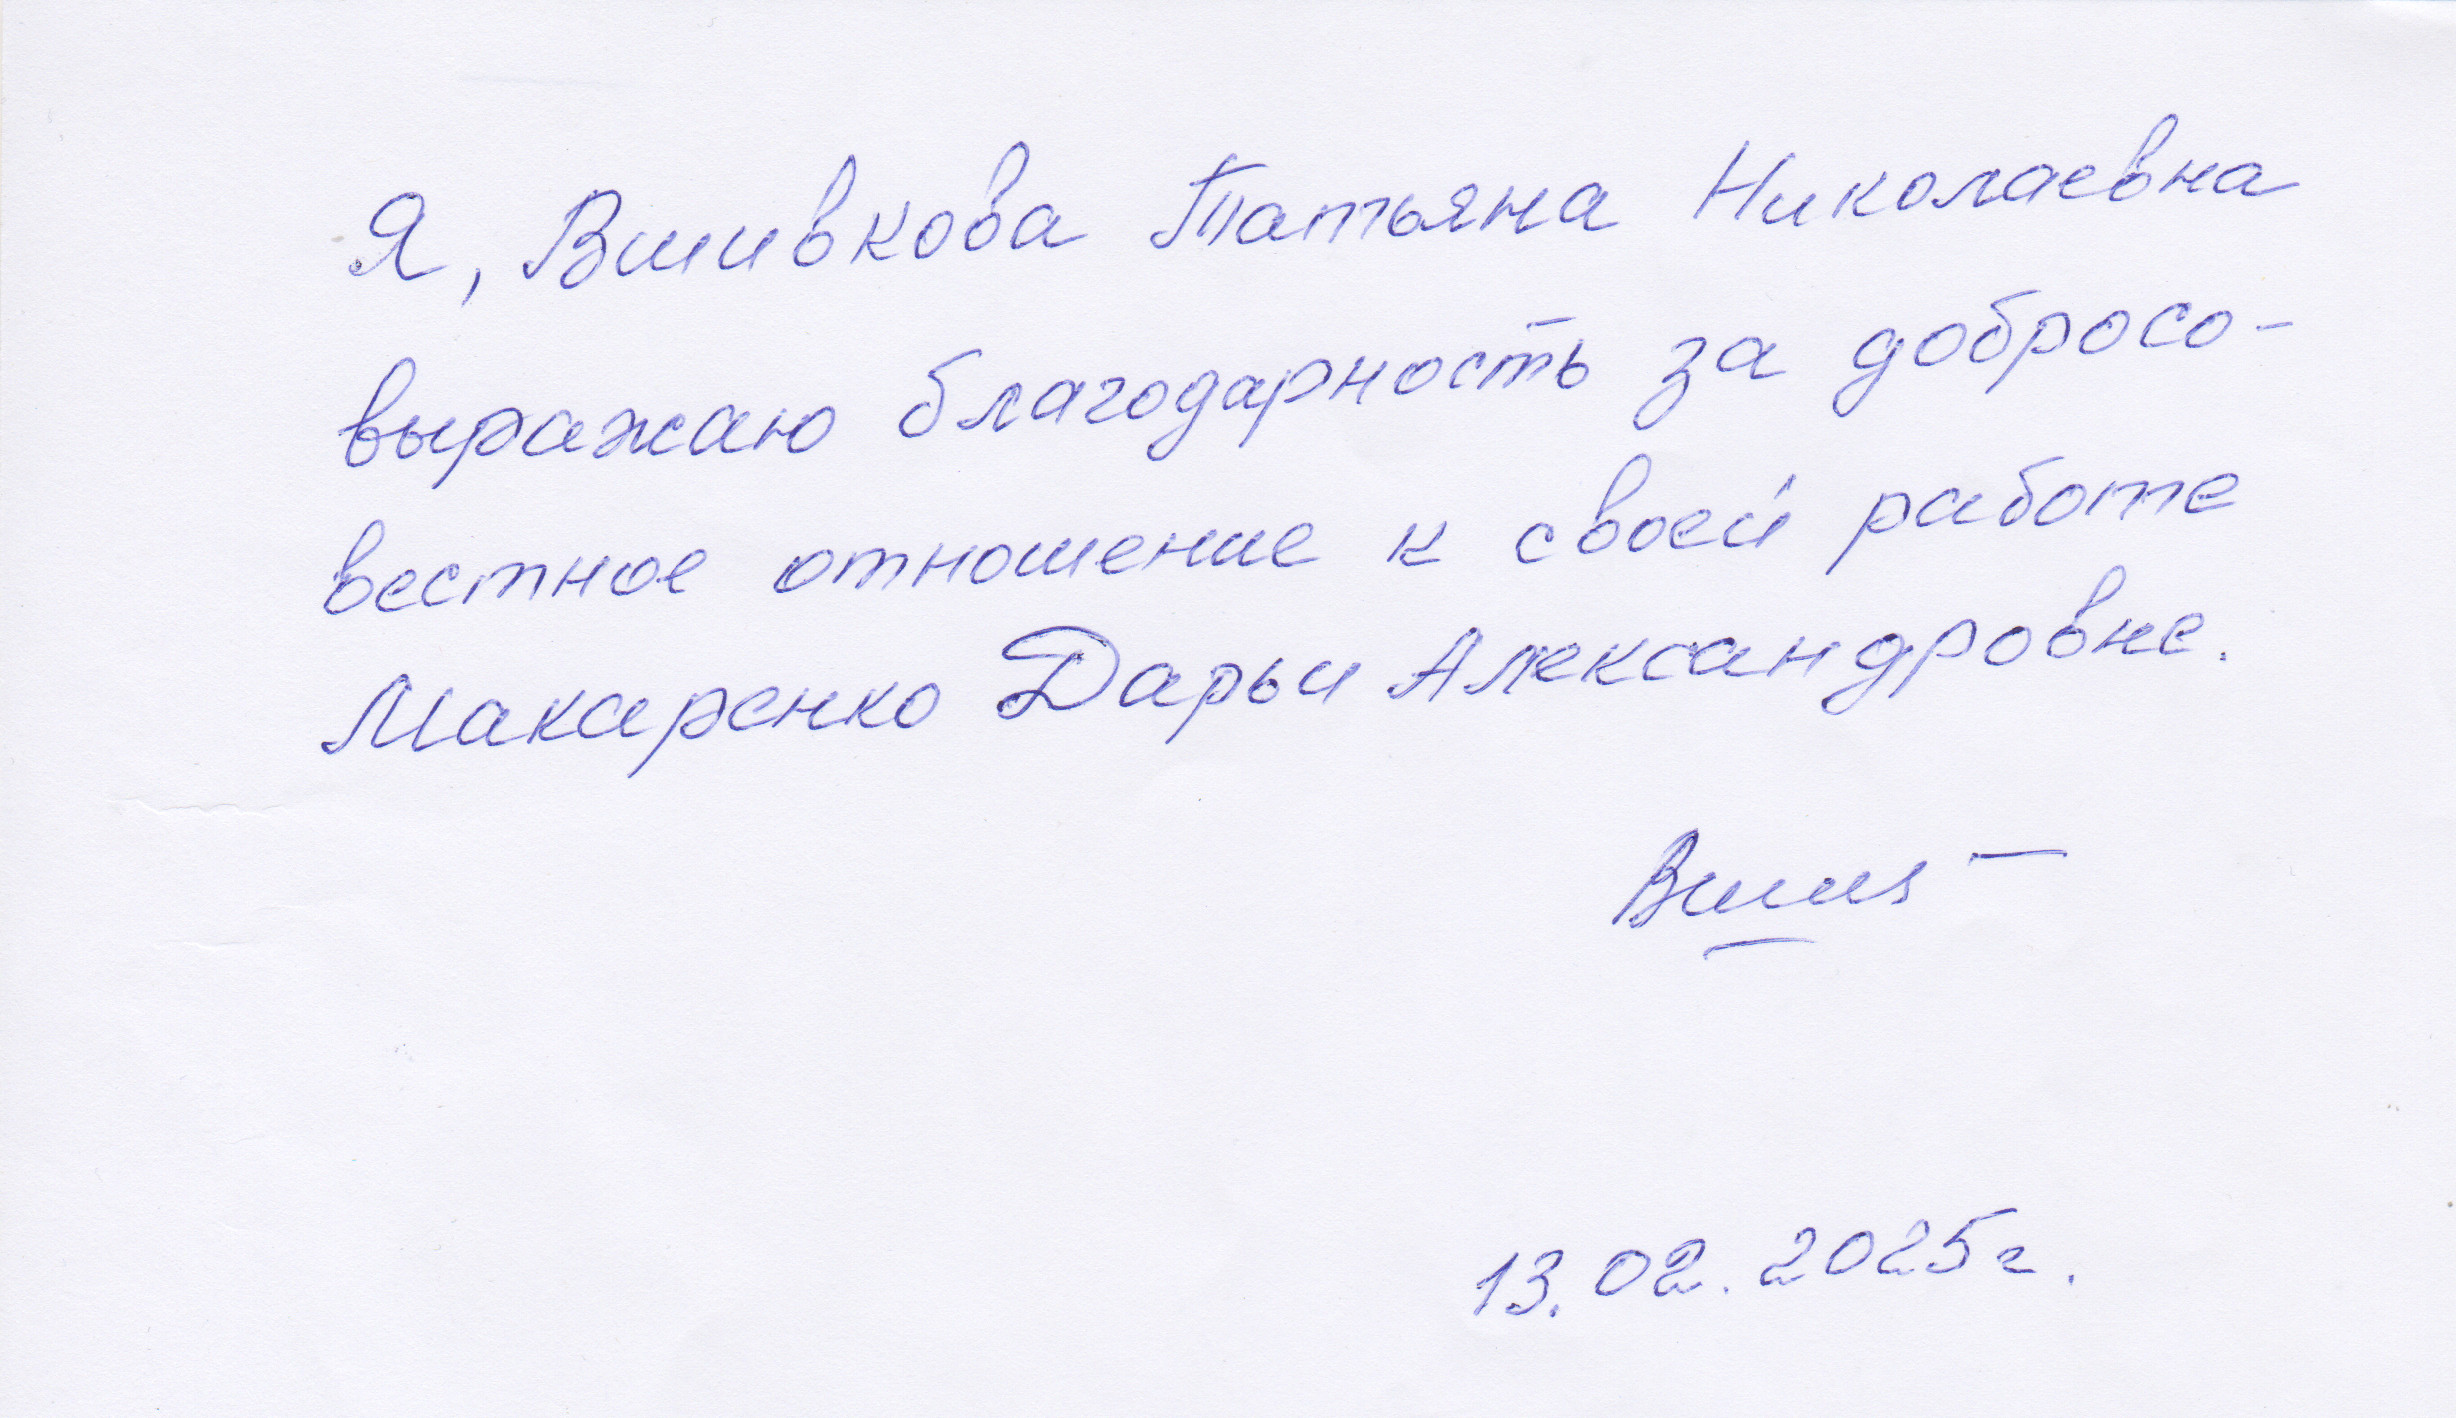 Я, Вшивкова Татьяна Николаевна
выражаю благодарность за добросо-
вестное отношение к своей работе
Макаренко Дарьи Александровне.
13.02.2025г.